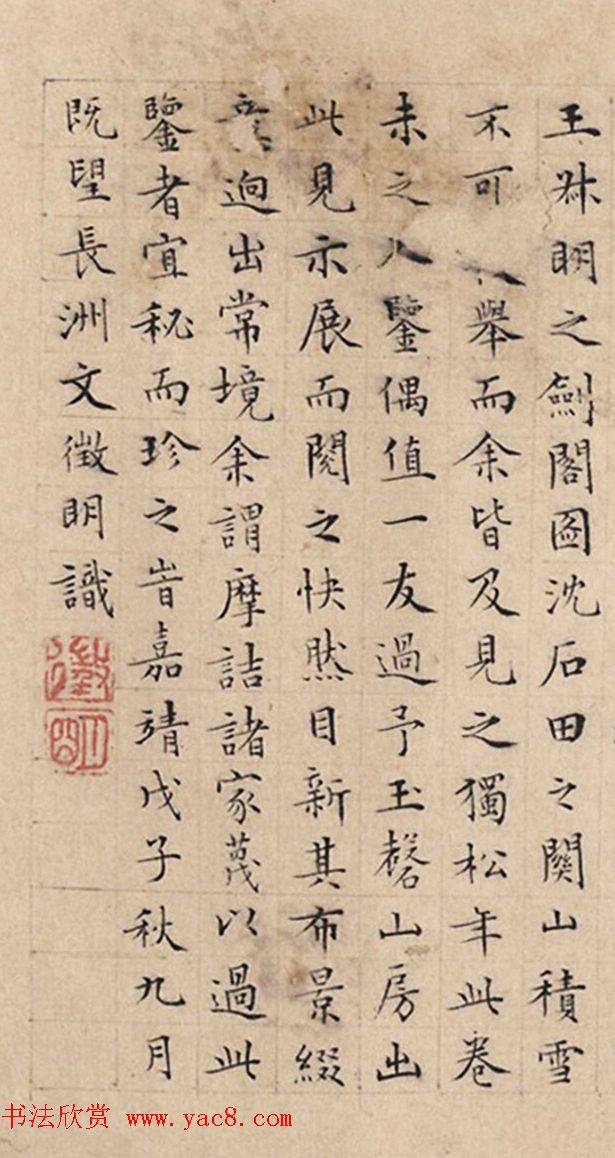 王叔明之劍閣圖沈石田之關山積雪
不可舉而余皆及見之獨松年此卷
未之鑒偶值一友過予玉磬山房出
此見示展而閱之快然目新其布景綴
意迥出常境余謂摩詰諸家蔑以過此
鑒者宜秘而珍之旹嘉靖戊子秋九月
既望長洲文徵明識
徵
明
书法欣赏 www.yac8.com